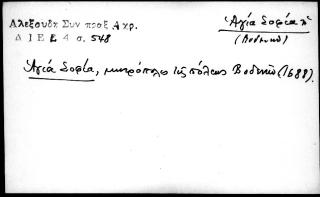 Αλεξουδη Συν πραξ Αχρ.
Δ Ι Ε Ε 4 σ. 548
Ἁγία Σοφία
Ἁγία Σοφία, μητρόπολις τῆς πόλεως Βοδενῶν (1688).